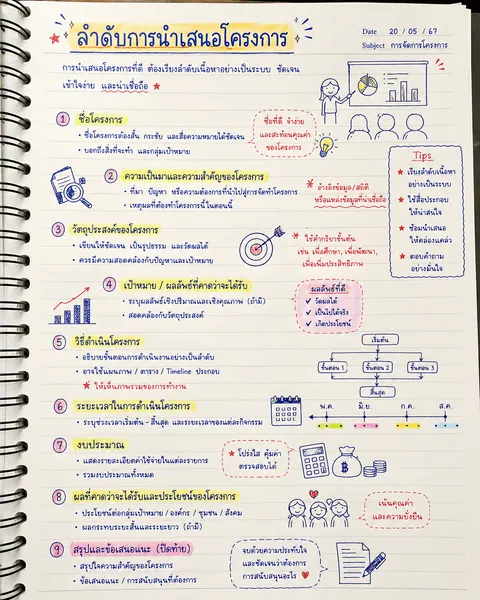 ลำดับการนำเสนอโครงการ
Date 20 / 05 / 67
Subject การจัดการโครงการ
การนำเสนอโครงการที่ดี ต้องเรียงลำดับเนื้อหาอย่างเป็นระบบ ชัดเจน
เข้าใจง่าย และน่าเชื่อถือ
1 ชื่อโครงการ
• ชื่อโครงการต้องสั้น กระชับ และสื่อความหมายได้ชัดเจน
• บอกถึงสิ่งที่จะทำ และกลุ่มเป้าหมาย
ชื่อที่ดี จำง่าย
และสะท้อนคุณค่า
ของโครงการ
2 ความเป็นมาและความสำคัญของโครงการ
• ที่มา ปัญหา หรือความต้องการที่นำไปสู่การจัดทำโครงการ
• เหตุผลที่ต้องทำโครงการนี้ในตอนนี้
* อ้างอิงข้อมูล/สถิติ
หรือแหล่งข้อมูลที่น่าเชื่อถือ
Tips
★ เรียงลำดับเนื้อหา
อย่างเป็นระบบ
★ ใช้สื่อประกอบ
ให้น่าสนใจ
★ ซ้อมนำเสนอ
ให้คล่องแคล่ว
★ ตอบคำถาม
อย่างมั่นใจ
3 วัตถุประสงค์ของโครงการ
• เขียนให้ชัดเจน เป็นรูปธรรม และวัดผลได้
• ควรมีความสอดคล้องกับปัญหาและเป้าหมาย
* ใช้คำกริยาขึ้นต้น
เช่น เพื่อศึกษา, เพื่อพัฒนา,
เพื่อเพิ่มประสิทธิภาพ
4 เป้าหมาย / ผลลัพธ์ที่คาดว่าจะได้รับ
• ระบุผลลัพธ์เชิงปริมาณและเชิงคุณภาพ (ถ้ามี)
• สอดคล้องกับวัตถุประสงค์
ผลลัพธ์ที่ดี
✓ วัดผลได้
✓ เป็นไปได้จริง
✓ เกิดประโยชน์
5 วิธีดำเนินโครงการ
• อธิบายขั้นตอนการดำเนินงานอย่างเป็นลำดับ
• อาจใช้แผนภาพ / ตาราง / Timeline ประกอบ
★ ให้เห็นภาพรวมของการทำงาน
เริ่มต้น
ขั้นตอน 1 ขั้นตอน 2 ขั้นตอน 3
สิ้นสุด
6 ระยะเวลาในการดำเนินโครงการ
• ระบุช่วงเวลาเริ่มต้น - สิ้นสุด และระยะเวลาของแต่ละกิจกรรม
พ.ค. มิ.ย. ก.ค. ส.ค.
7 งบประมาณ
• แสดงรายละเอียดค่าใช้จ่ายในแต่ละรายการ
• รวมงบประมาณทั้งหมด
★ โปร่งใส คุ้มค่า
ตรวจสอบได้
8 ผลที่คาดว่าจะได้รับและประโยชน์ของโครงการ
• ประโยชน์ต่อกลุ่มเป้าหมาย / องค์กร / ชุมชน / สังคม
• ผลกระทบระยะสั้นและระยะยาว (ถ้ามี)
เน้นคุณค่า
และความยั่งยืน
9 สรุปและข้อเสนอแนะ (ปิดท้าย)
• สรุปใจความสำคัญของโครงการ
• ข้อเสนอแนะ / การสนับสนุนที่ต้องการ
จบด้วยความประทับใจ
และชัดเจนว่าต้องการ
การสนับสนุนอะไร